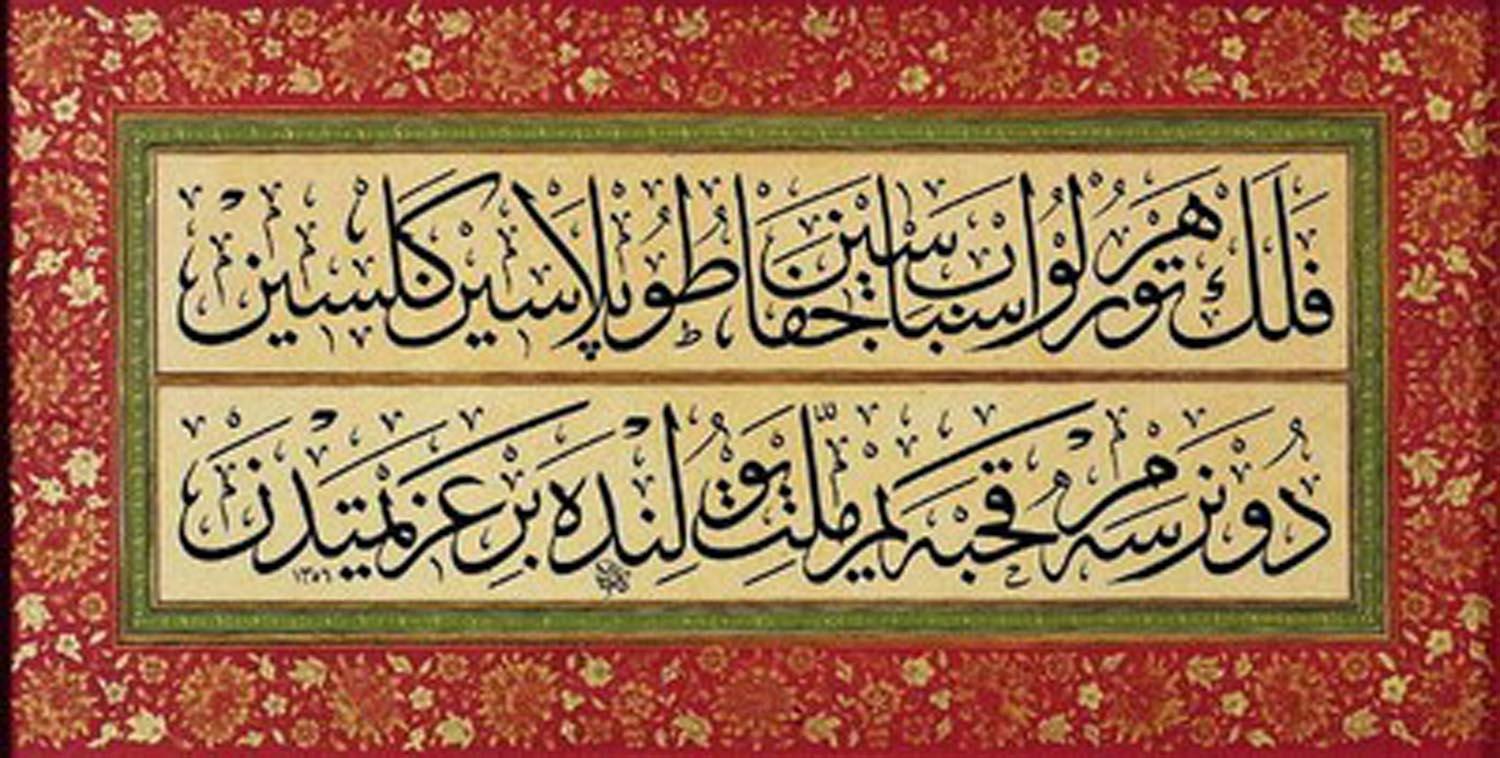 فلك هر تورلو اسباب جفاسين طوپلاسين كلسين
دونرسه م قحبه يم ملت يولنده بر عزيمتدن
١٣٥٦